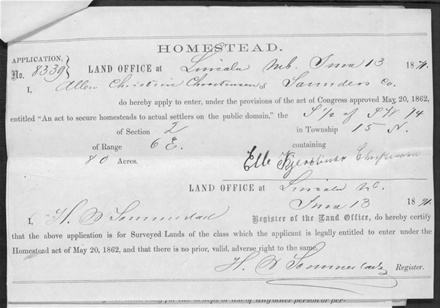 HOMESTEAD.
APPLICATION.
No. 8339
LAND OFFICE at Lincoln Neb. June 13 187
I, Christine of Saunders Co.
do hereby apply to enter, under the provisions of the act of Congress approved May 20, 1862,
entitled "An act to secure homesteads to actual settlers on the public domain," the S½ of SW ¼
of Section 2 in Township 15 N.
of Range 6 E. containing
80 Acres.
LAND OFFICE at Lincoln
June 13 187
I, H. Register of the Land Office, do hereby certify
that the above application is for Surveyed Lands of the class which the applicant is legally entitled to enter under the
Homestead act of May 20, 1862, and that there is no prior, valid, adverse right to the same.
H. Register.